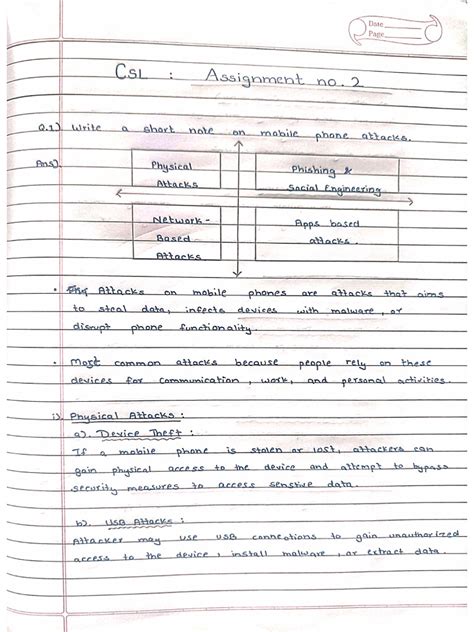 Date
Page
CSL : Assignment no. 2
Q.1) Write a short note on mobile phone attacks.
Ans).
Physical Attacks
Phishing & Social Engineering
Network-Based Attacks
Apps based attacks.
• Attacks on mobile phones are attacks that aims
to steal data, infects devices with malware, or
disrupt phone functionality.
• Most common attacks because people rely on these
devices for communication, work, and personal activities.
i) Physical Attacks :
a). Device Theft :
If a mobile phone is stolen or lost, attackers can
gain physical access to the device and attempt to bypass
security measures to access senstive data.
b). USB Attacks :
Attacker may use USB connections to gain unauthorized
access to the device, install malware, or extract data.